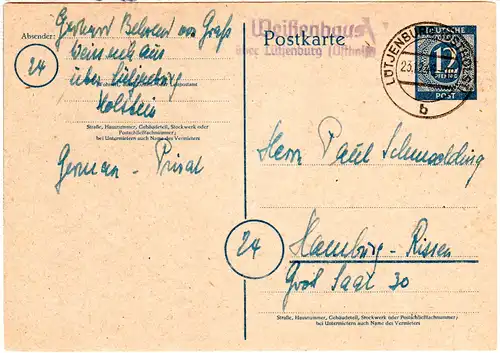 Absender:
Gerhard Behrend von Graß
Weissenhaus
über Lütjenburg
Holstein
24
Straße, Hausnummer, Gebäudeteil, Stockwerk oder
Postschließfachnummer;
bei Untermietern auch Name des Vermieters
German - Privat
Weißenhaus
über Lütjenburg (Ostholst)
Postkarte
LÜTJENBURG
23.
b
DEUTSCHE
12
PFENNIG
POST
Herrn Paul Schmolding
24
Hamburg-Rissen
Groß Saar 30
Straße, Hausnummer, Gebäudeteil, Stockwerk oder Postschließfachnummer;
bei Untermietern auch Name des Vermieters